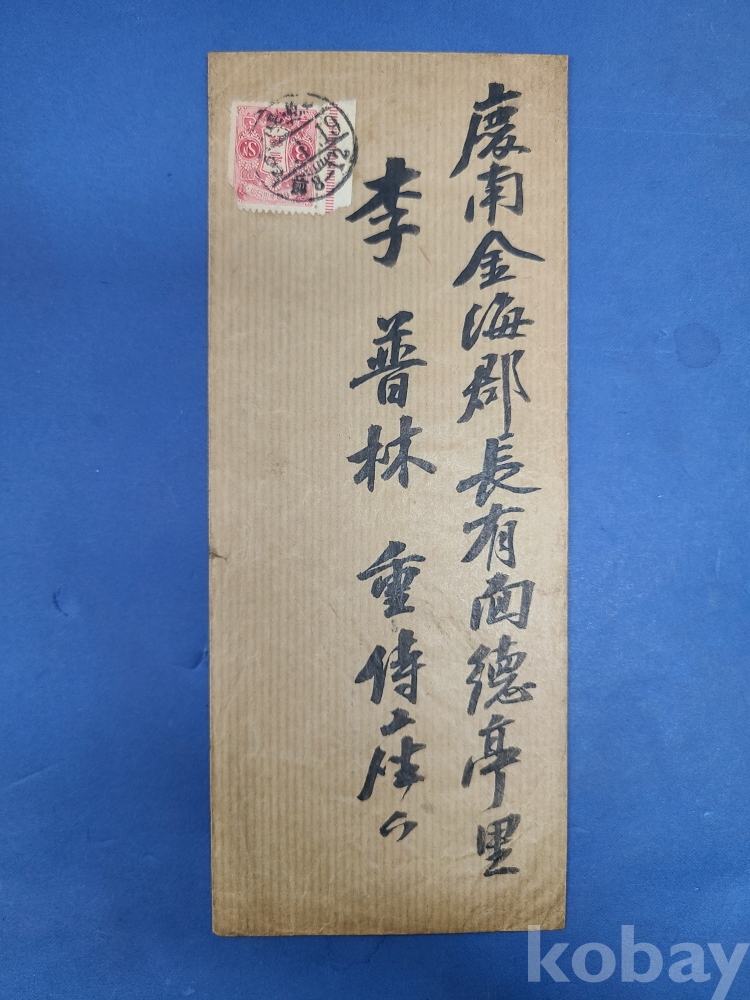 慶南金海郡長有面德亭里
李 普林 重侍座下
kobay